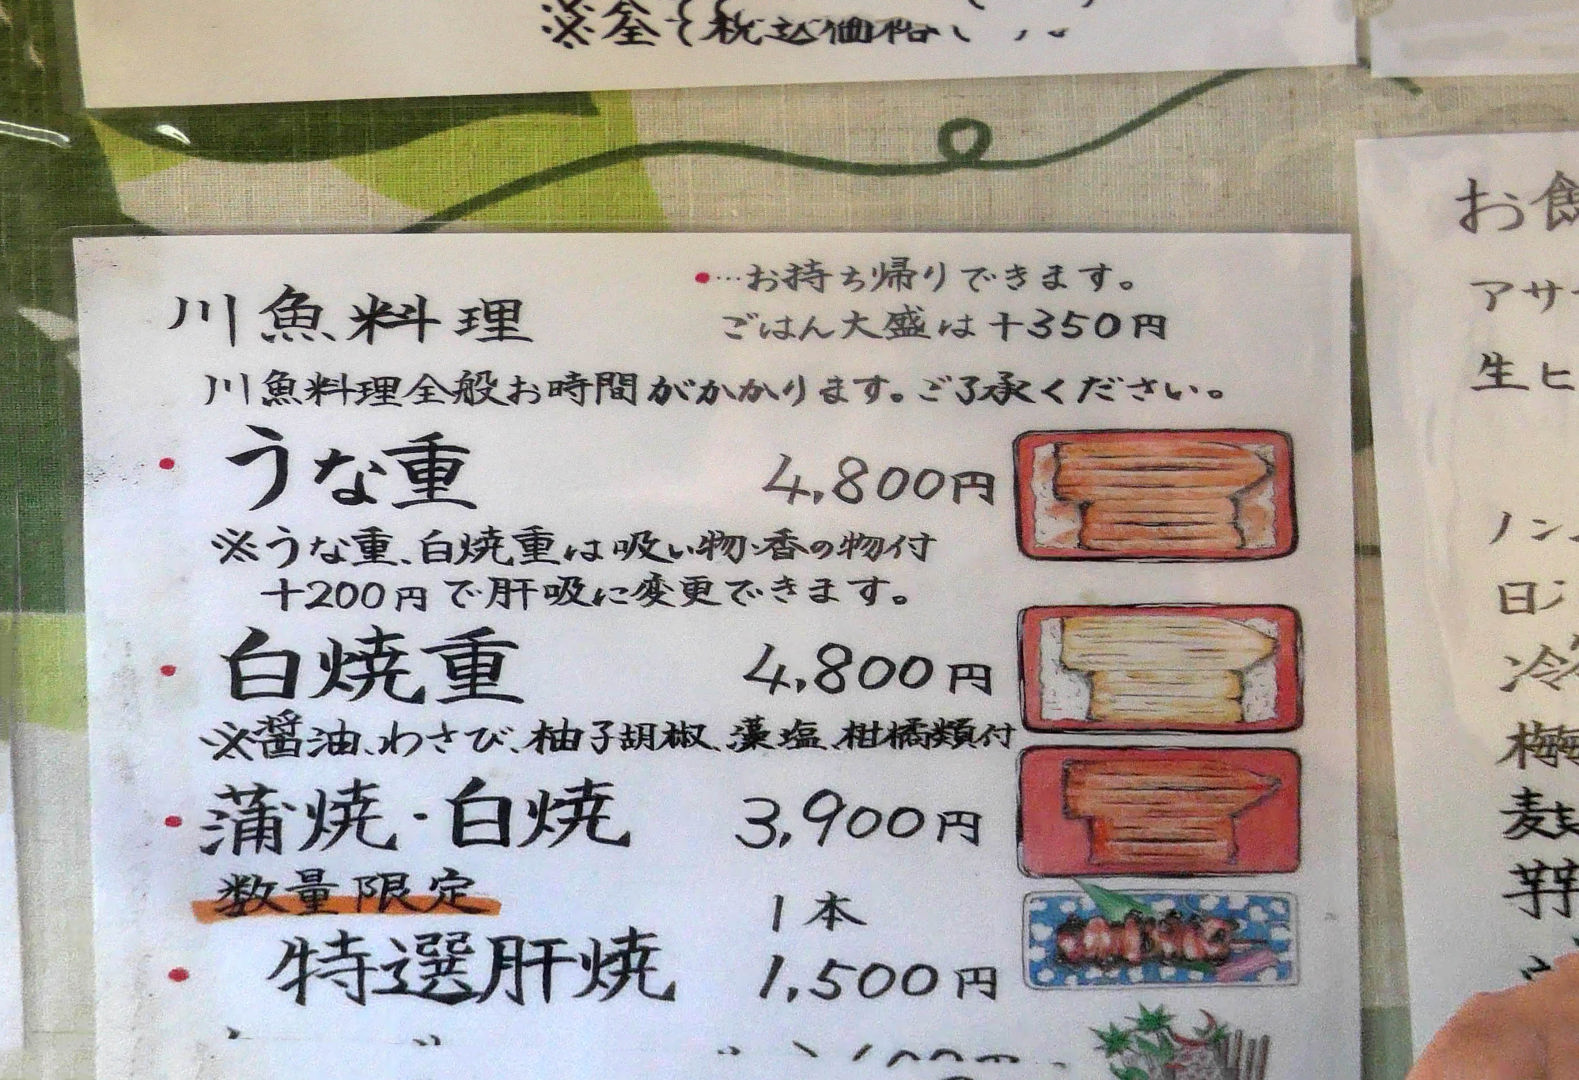 ※全て税込価格
川魚料理
●…お持ち帰りできます。
ごはん大盛は+350円
川魚料理全般お時間がかかります。ご了承ください。
● うな重 4,800円
※うな重、白焼重は吸い物・香の物付
+200円で肝吸に変更できます。
● 白焼重 4,800円
※醤油、わさび、柚子胡椒、藻塩、柑橘類付
● 蒲焼・白焼 3,900円
数量限定 1本
● 特選肝焼 1,500円
お
アサ
生ビ
ノン
日
冷
梅
麦
芋